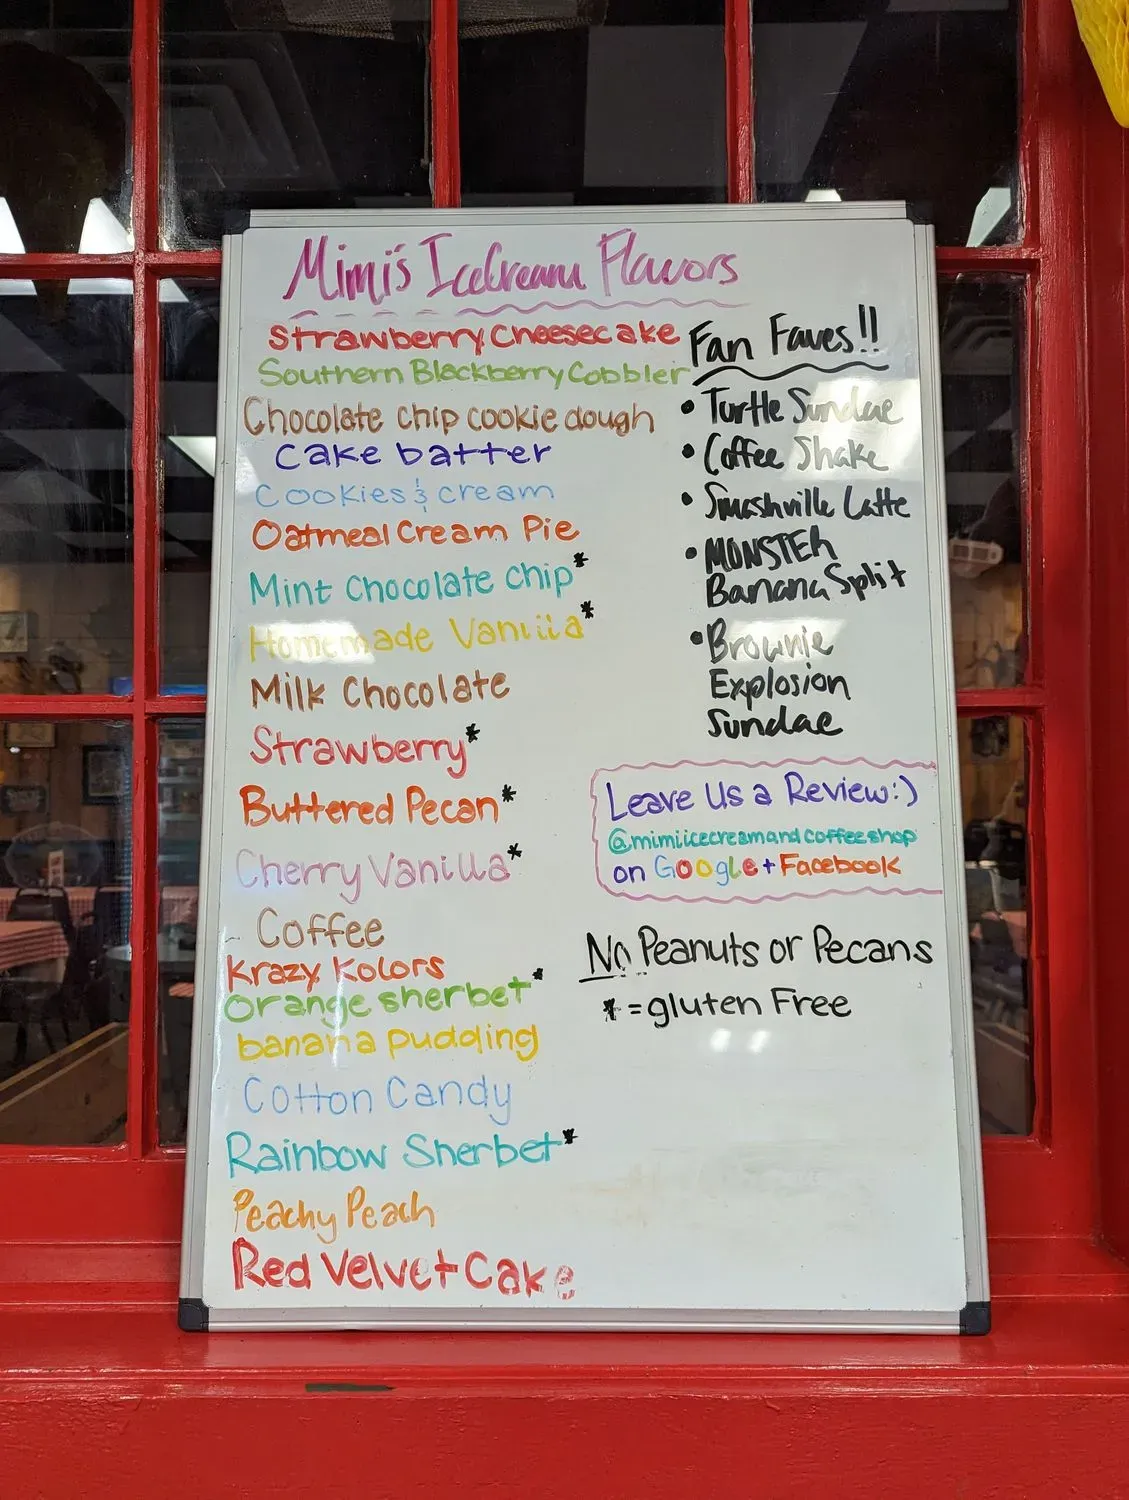 Mimi's IceCream Flavors
Strawberry Cheesecake
Southern Blackberry Cobbler
Chocolate chip cookie dough
cake batter
cookies & cream
Oatmeal Cream Pie
Mint Chocolate chip*
Homemade Vanilla*
Milk Chocolate
Strawberry*
Buttered Pecan*
Cherry Vanilla*
Coffee
Krazy Kolors
orange sherbet*
banana pudding
Cotton Candy
Rainbow Sherbet*
Peachy Peach
Red Velvet Cake
Fan Faves!!
• Turtle Sundae
• Coffee Shake
• Smashville Latte
• MONSTER
Banana Split
• Brownie
Explosion
Sundae
Leave Us a Review:)
@mimiicecreamandcoffeeshop
on Google + Facebook
No Peanuts or Pecans
* = gluten Free